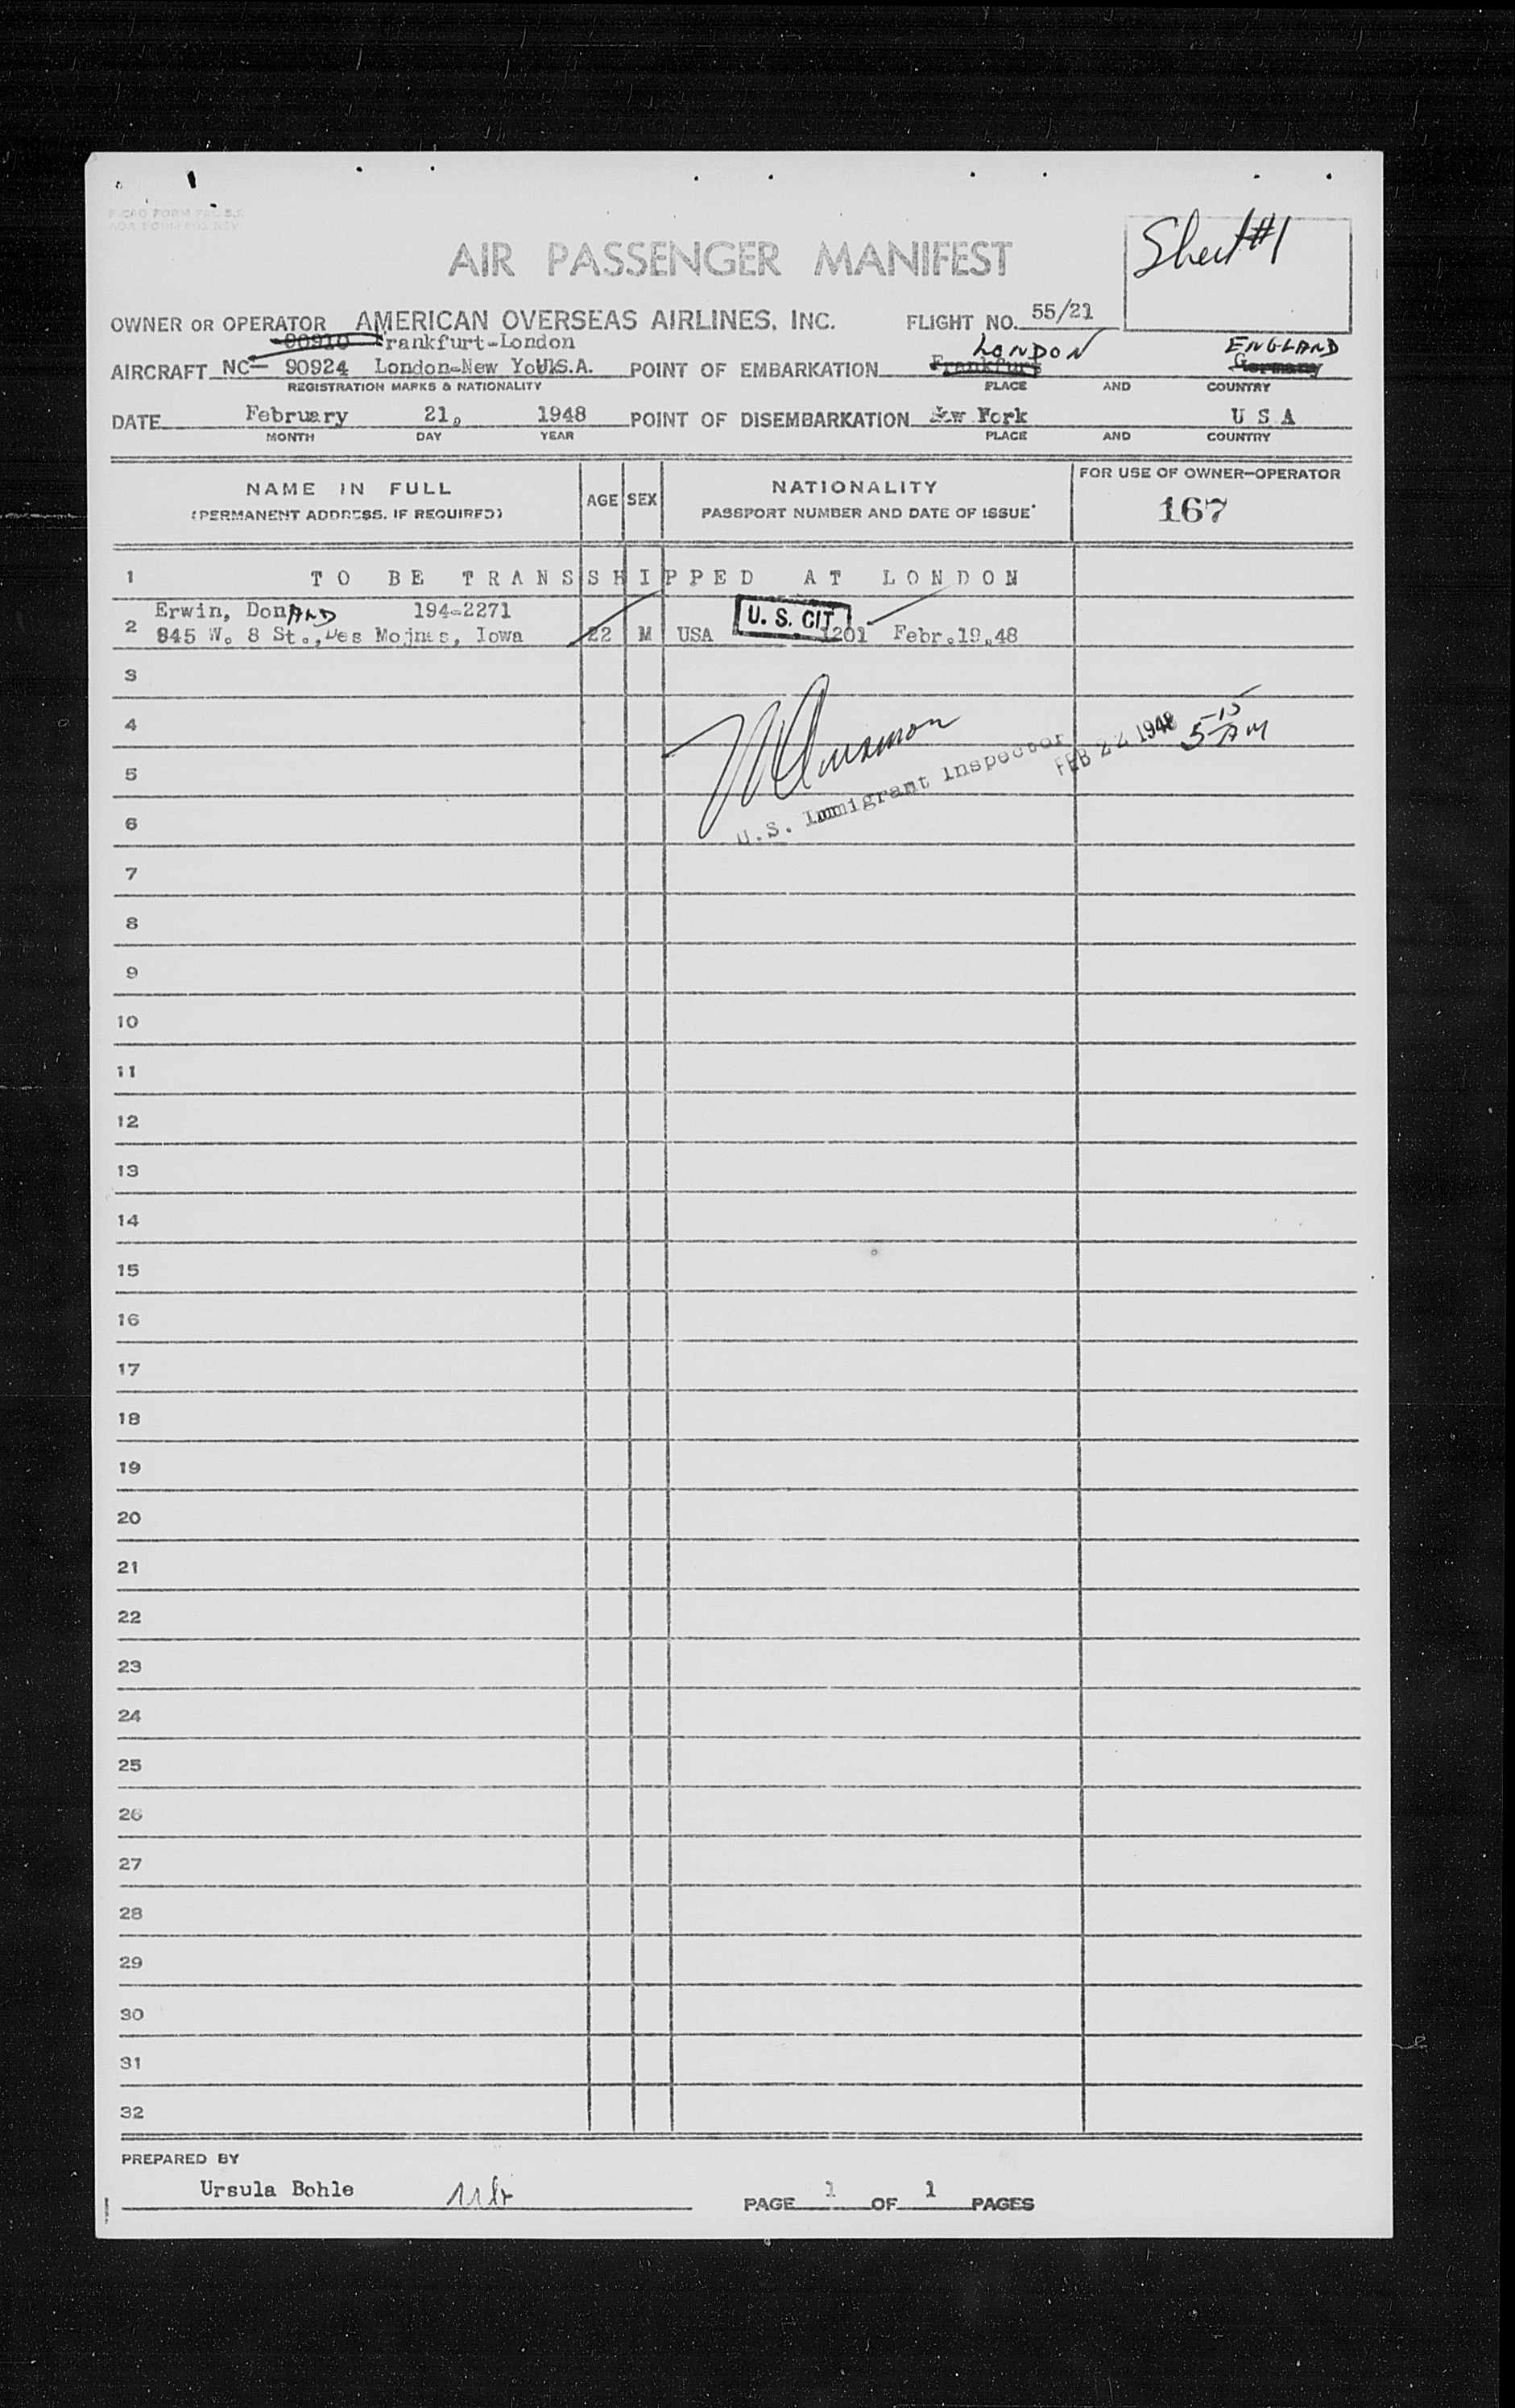 Sheet #1
AIR PASSENGER MANIFEST
OWNER OR OPERATOR AMERICAN OVERSEAS AIRLINES, INC. FLIGHT NO. 55/21
90910 Frankfurt-London LONDON ENGLAND
AIRCRAFT NC- 90924 London-New York U.S.A. POINT OF EMBARKATION Frankfurt Germany
REGISTRATION MARKS & NATIONALITY PLACE AND COUNTRY
DATE February 21, 1948 POINT OF DISEMBARKATION New York U S A
MONTH DAY YEAR PLACE AND COUNTRY
NAME IN FULL
(PERMANENT ADDRESS, IF REQUIRED)
AGE SEX
NATIONALITY
PASSPORT NUMBER AND DATE OF ISSUE
FOR USE OF OWNER-OPERATOR
167
1 TO BE TRANSSHIPPED AT LONDON
Erwin, DonALD 194-2271
2 845 W. 8 St., Des Mojnes, Iowa 22 M USA U. S. CIT 1201 Febr.19.48
3
4
5
U.S. Immigrant Inspector FEB 22 1948 5-15 AM
6
7
8
9
10
11
12
13
14
15
16
17
18
19
20
21
22
23
24
25
26
27
28
29
30
31
32
PREPARED BY
Ursula Bohle
PAGE 1 OF 1 PAGES